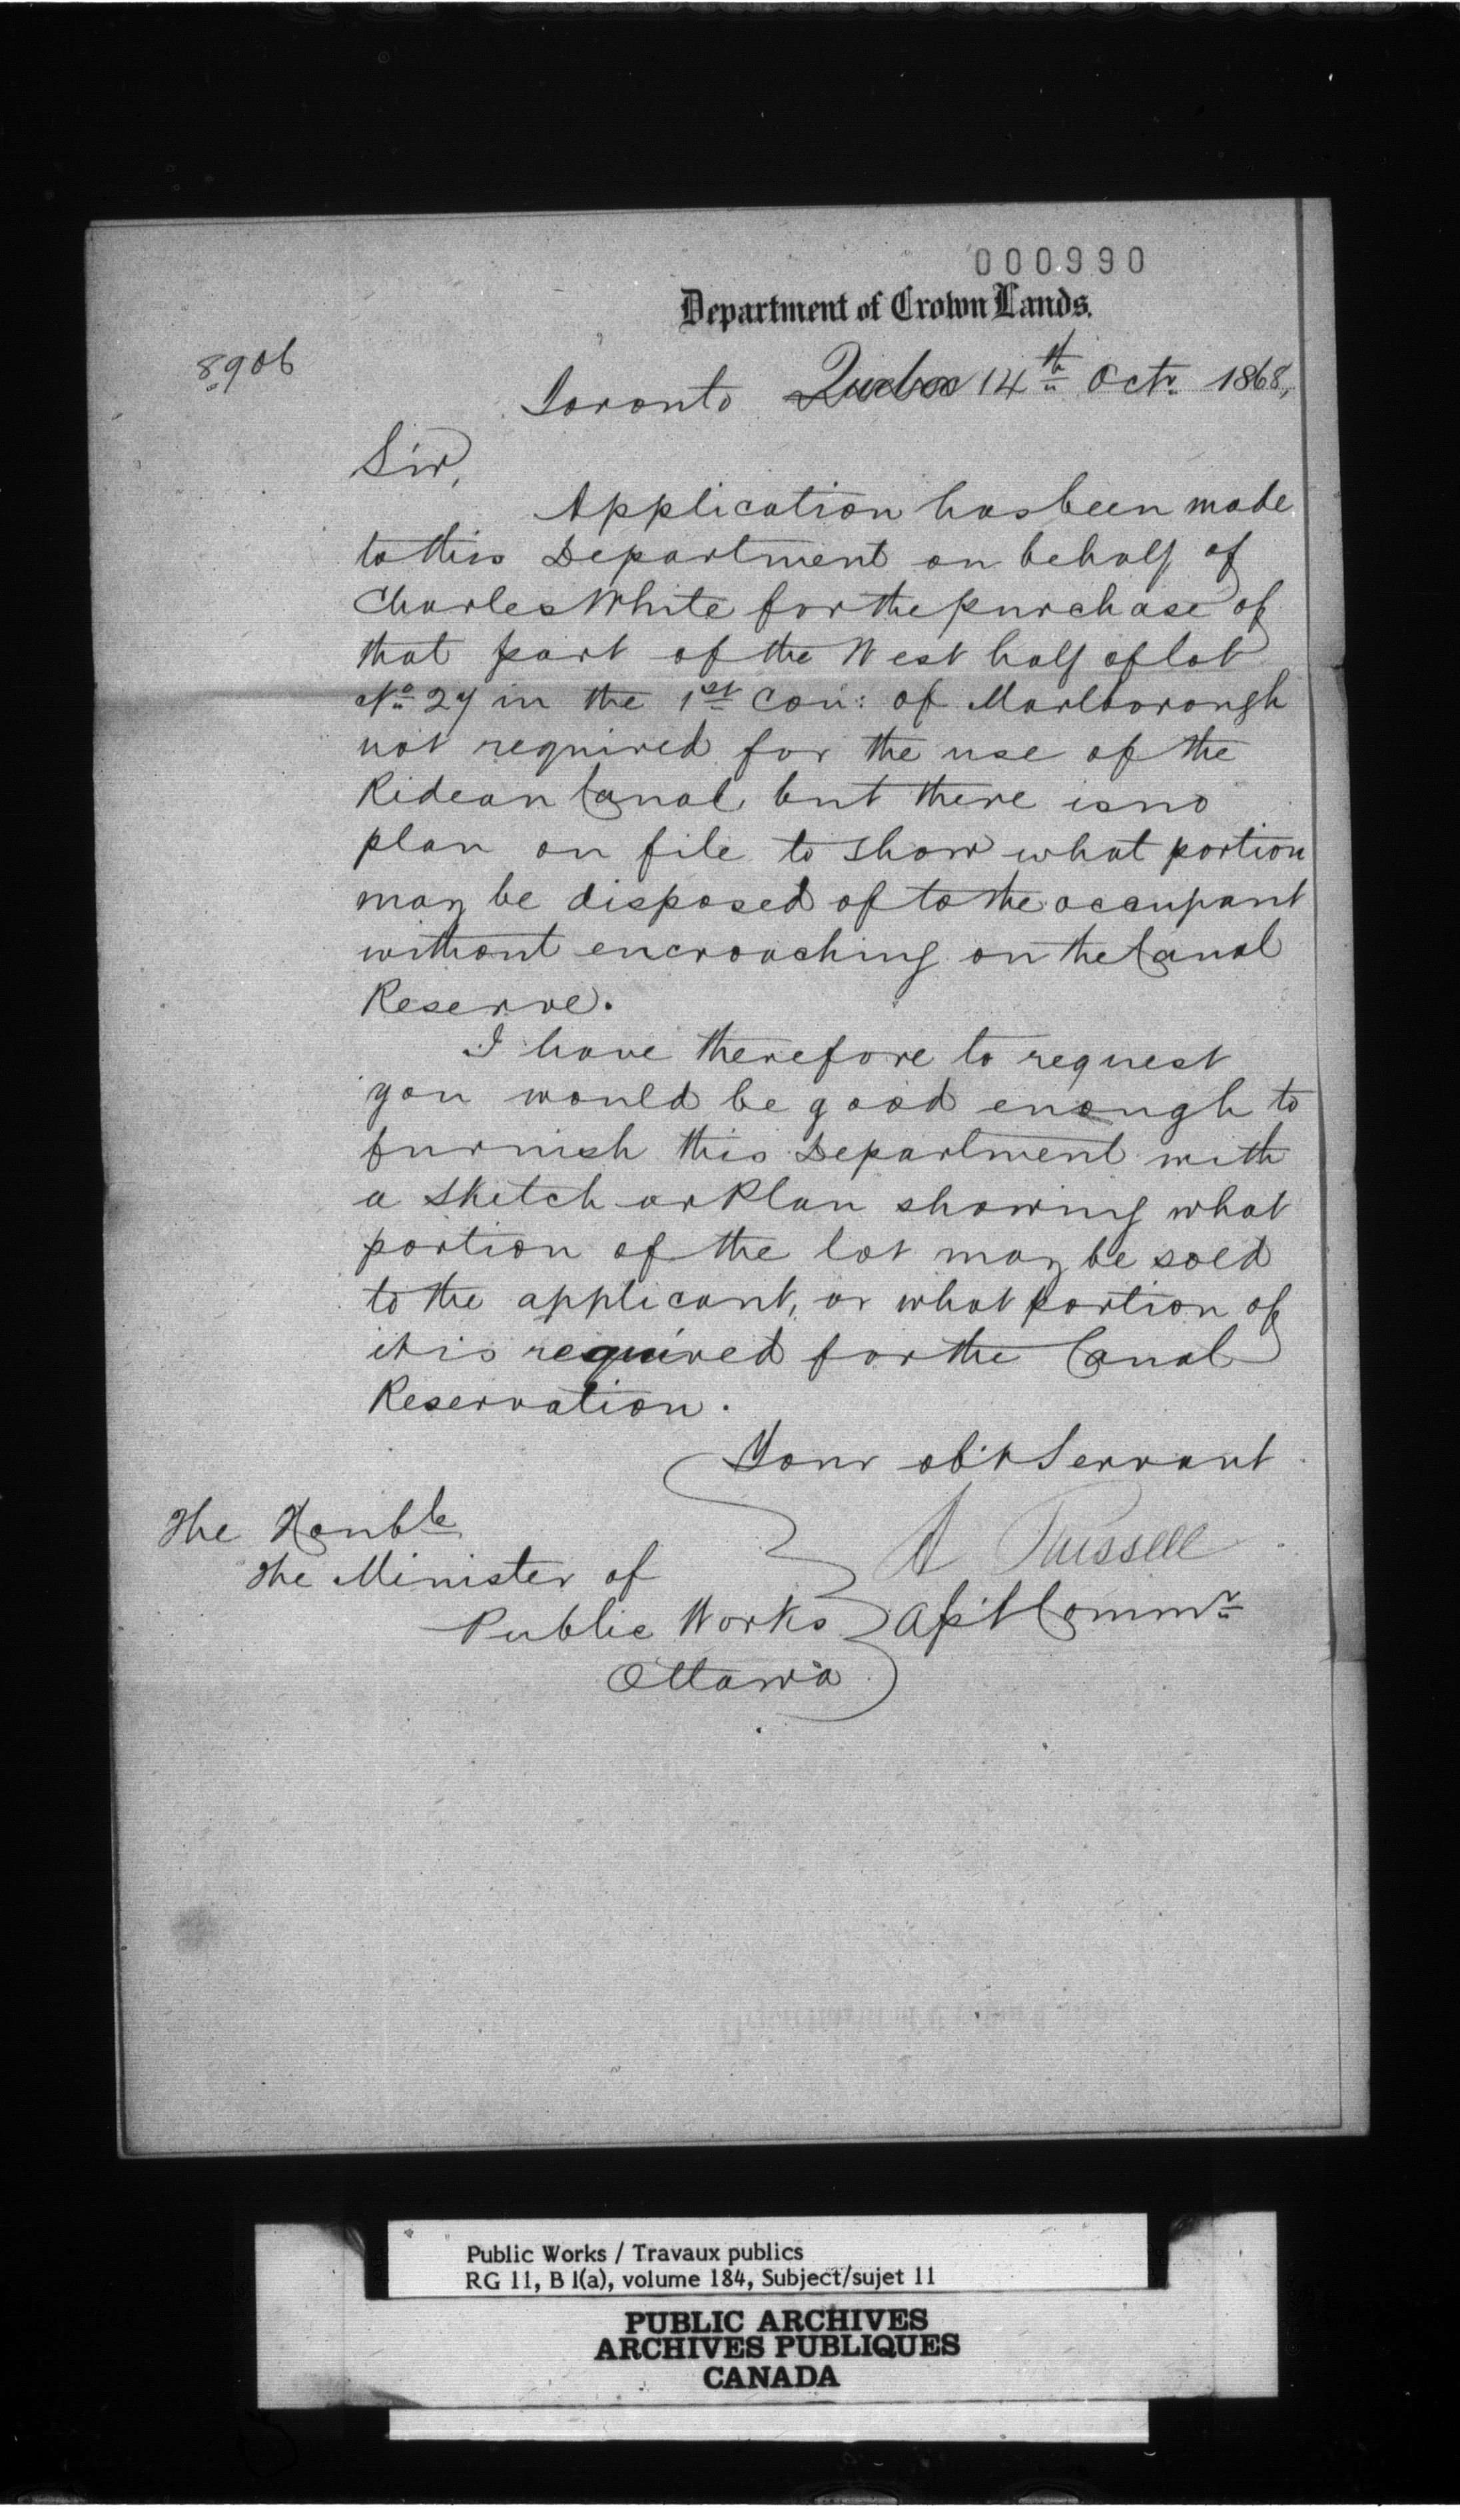 000990
Department of Crown Lands.
8906
Toronto Quebec 14th Octr. 1868,
Sir,
Application has been made
to this Department on behalf of
Charles White for the purchase of
that part of the West half of lot
No. 27 in the 1st Con: of Marlborough
not required for the use of the
Rideau Canal but there is no
plan on file to show what portion
may be disposed of to the occupant
without encroaching on the Canal
Reserve.
I have therefore to request
you would be good enough to
furnish this Department with
a sketch or Plan showing what
portion of the lot may be sold
to the applicant, or what portion of
it is required for the Canal
Reservation.
Your ob't Servant
A Russell
Ass't Commr
The Honble
The Minister of
Public Works
Ottawa
Public Works / Travaux publics
RG 11, B 1(a), volume 184, Subject/sujet 11
PUBLIC ARCHIVES
ARCHIVES PUBLIQUES
CANADA